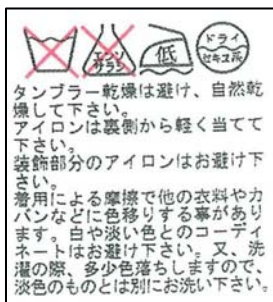 エンソ
サラシ
低
ドライ
セキユ系
タンブラー乾燥は避け、自然乾
燥して下さい。
アイロンは裏側から軽く当てて
下さい。
装飾部分のアイロンはお避け下
さい。
着用による摩擦で他の衣料やカ
バンなどに色移りする事があり
ます。白や淡い色とのコーディ
ネートはお避け下さい。又、洗
濯の際、多少色落ちしますので、
淡色のものとは別にお洗い下さい。